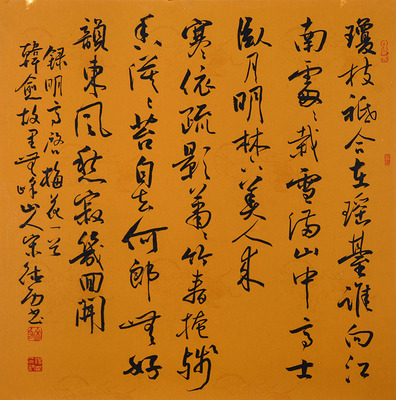 瓊枝祗合在瑶臺誰向江
南處々栽雪满山中高士
臥月明林下美人来
寒依疏影蕭々竹春掩残
香漠々苔自去何郎無好
韻東風愁寂幾回開
録明高啓梅花一首
韓愈故里 山人宋 書